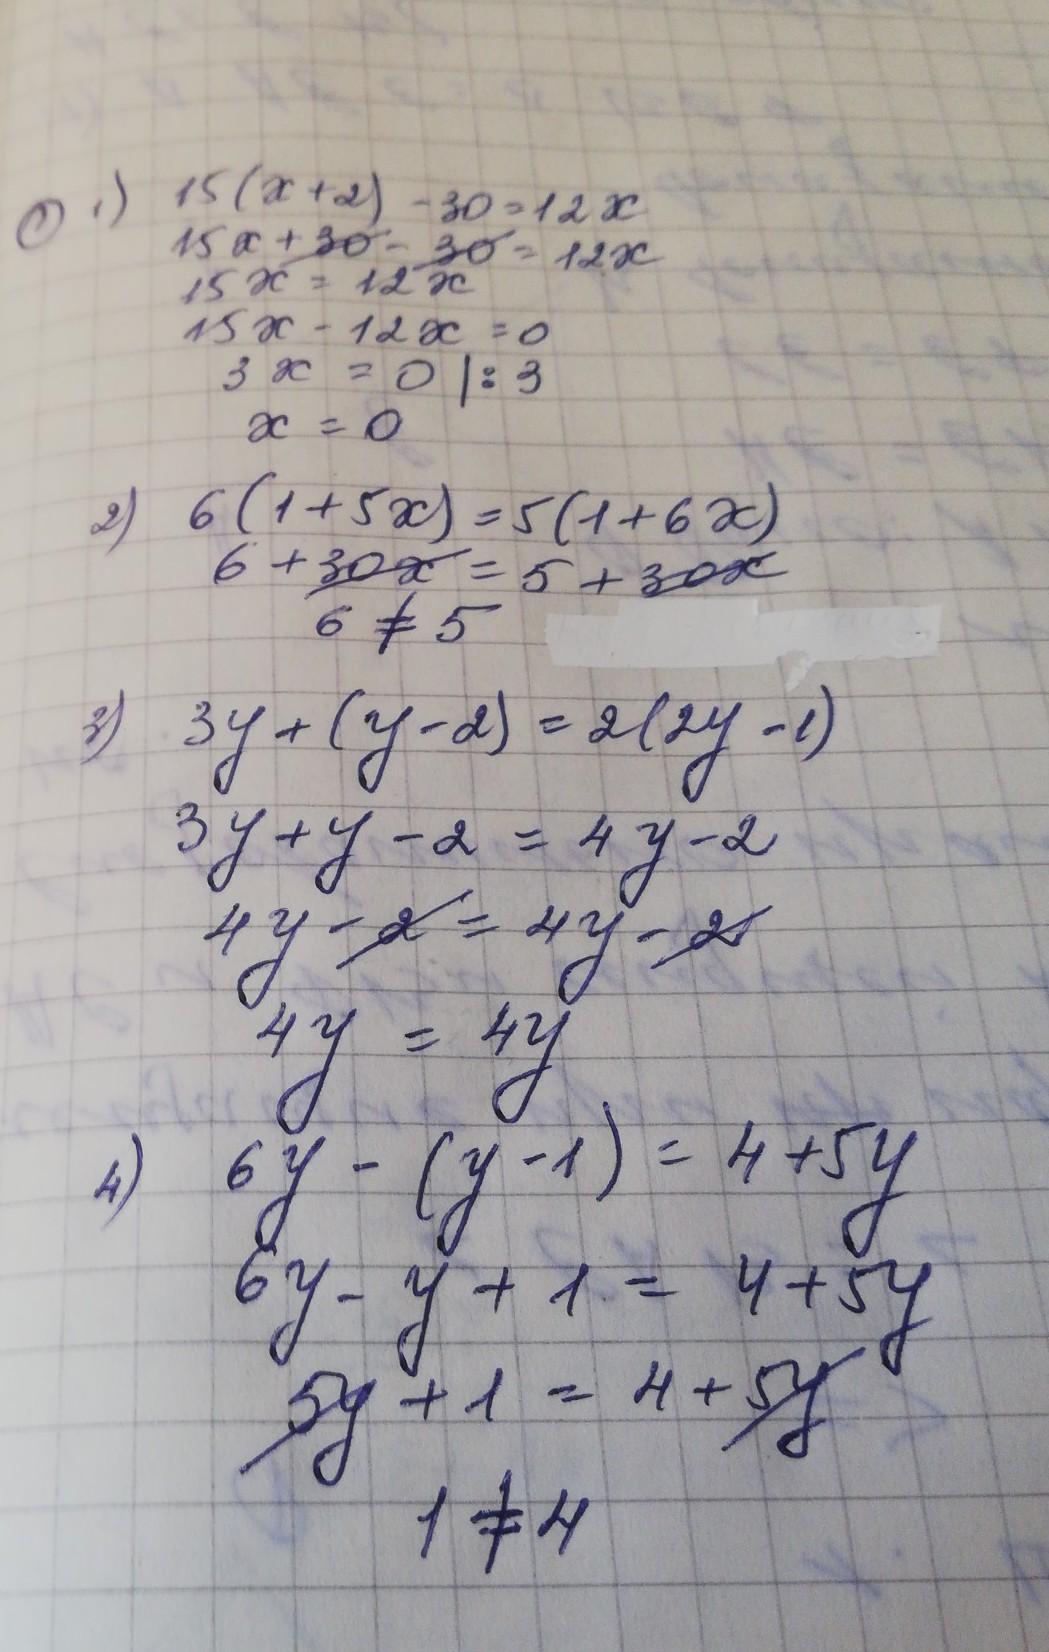 ① 1) 15(x+2) -30=12x
15x+30-30=12x
15x=12x
15x-12x=0
3x=0 |:3
x=0
2) 6(1+5x)=5(1+6x)
6+30x=5+30x
6≠5
3) 3y+(y-2)=2(2y-1)
3y+y-2=4y-2
4y-2=4y-2
4y=4y
4) 6y-(y-1)=4+5y
6y-y+1=4+5y
5y+1=4+5y
1≠4